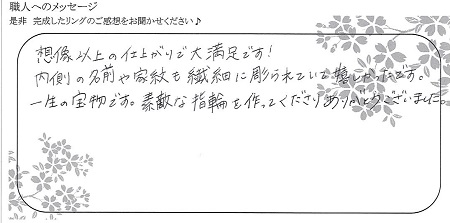 職人へのメッセージ
是非 完成したリングのご感想をお聞かせください♪
想像以上の仕上がりで大満足です！
内側の名前や家紋も繊細に彫られていて嬉しかったです。
一生の宝物です。素敵な指輪を作ってくださりありがとうございました。